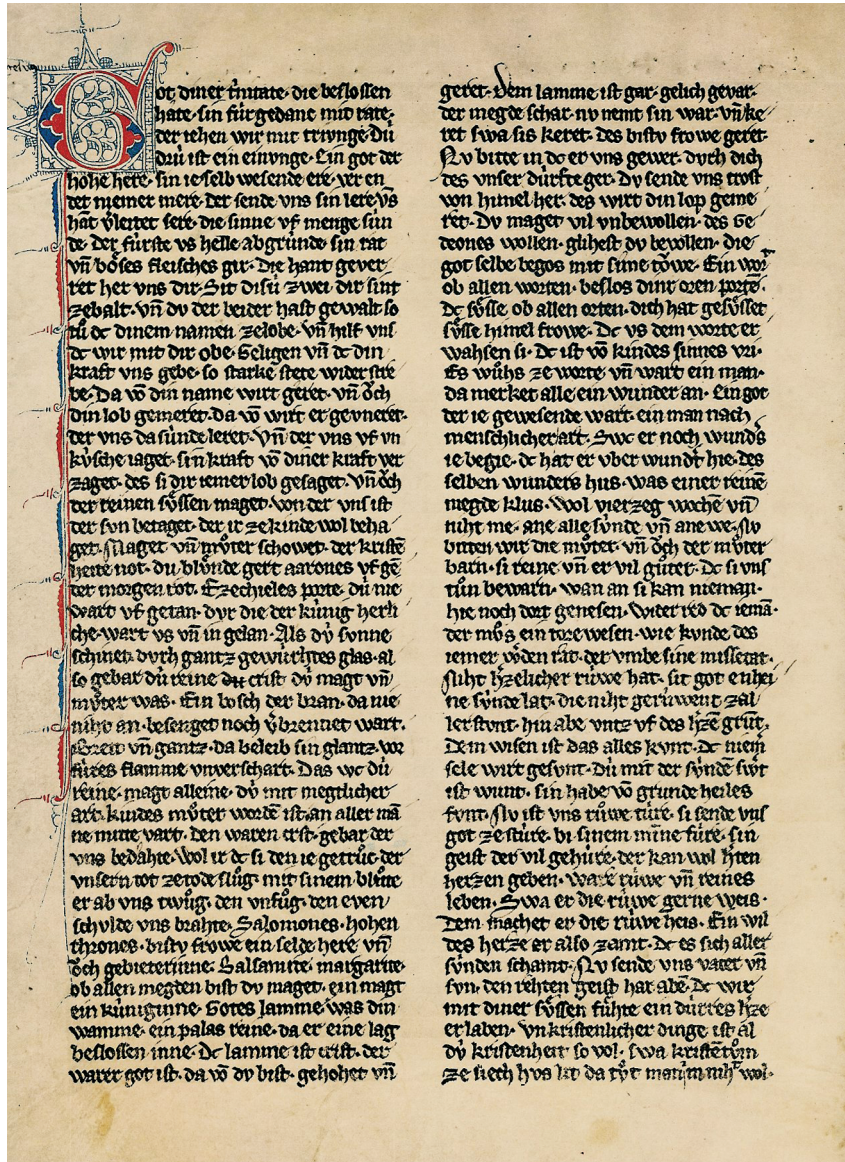 Got diner trinitate· die beslossen
hate· sin fúrgedanc mit rate·
der iehen wir mit triunge· Dú
drú ist ein einunge· Ein got der
hohe here· sin ie selb wesende ere· ver en
det niemer mere· der sende vns sin lere· v̄s
hat v̓leitet sere· die sinne vf menge sún
de· der fúrste vs helle abgrúnde· sin rat
vn̄ bo̊ses fleisches gir· Die hant gever
ret her vns dir· Sit disú zwei dir sint
ze balt· vn̄ dv der beider hast gewalt so
tů dc dinem namen ze lobe· vn̄ hilf vns
dc wir mit dir obe· geligen vn̄ dc din
kraft vns gebe· so starke stete wider stre
be· Da vō din name wirt geret· vn̄ o̊ch
din lob gemeret· da vō wirt er gevneret·
der vns da súnde leret· Vn̄ der vns vf vn
kúsche iaget· sin kraft vō diner kraft ver
zaget· des si dir iemer lob gesaget· vn̄ o̊ch
der reinen sv̊ssen maget· von der vns ist
der svn betaget· der ir ze kinde wol beha
get· Maget vn̄ mv̊ter schowet· der kristē
heite not· du blv̊nde gert aarones vf gē
der morgen rot· Ezechieles porte· dú nie
wart vf getan· dvr die der kúnig herli
che· wart vs vn̄ in gelan· Als dú svnne
schinet dvrh gantz gewúrhtes glas· al
so gebar dú reine crist· dv̇ magt vn̄
mv̊ter was· Ein bosch der bran· da nie
niht an· besenget noch v̓brennet wart·
Breit vn̄ gantz· da beleib sin glantz· vor
fúres flamme vnverschart· Das wc dú
reine· magt alleine· dv̇ mit megtlicher
art· kindes mv̊ter wordē ist· an aller mā
ne mitte vart· den waren crist· gebar der
vns bedahte· Wol ir dc si den ie getrůc· der
vnsern tot ze tode slůg· mit sinem blůte
er ab vns twůg· den vnfůg· den even
schvlde vns brahte· Salomones· hohen
thrones· bistv frowe ein selde here vn̄
o̊ch gebieterinne· Balsamite margarite·
ob allen megden bist dv maget· ein magt
ein kúniginne· Gotes lamme was din
wamme· ein palas reine· da er eine lag
beslossen inne· Dc lamme ist crist· der
warer got ist· da vō dv bist· gehohet vn̄
geret· dem lamme ist gar· gelich gevar·
der megde schar· nv nemt sin war· vn̄ ke
ret swa sis keret· des bistv frowe geret·
Nv bitte in do er vns gewer· dvrh dich
des vnser dúrfte ger· Dv sende vns trost
von himel her· des wirt din lop geme
ret· Dv maget vil vnbewollen· des Ge
deones wollen· glihest dv bewollen· die
got selbe begos mit sime to̊we· Ein wort
ob allen worten· beslos dinr oren portē·
Dc sv̊sse· ob allen orten· dich hat gesv̊sset
sv̊sse himel frowe· Dc vs dem worte er
wahsen si· Dc ist vō kindes sinnes vri·
Es wůhs ze worte vn̄ wart ein man·
da merket alle ein wunder an· Ein got
der ie gewesende wart· ein man nach
menschlicher art· Swc er noch wundˢ
ie begie· dc hat er vber wundt hie· des
selben wunders hus· was einer reinē
megde klus· Wol vierzeg wochē vn̄
niht me· ane alle súnde vn̄ ane we· Nv
bitten wir die mv̊ter· vn̄ o̊ch der mv̊ter
barn· si reine vn̄ er vil gůter· Dc si vns
tůn bewarn· wan an si kan nieman·
hie noch dort genesen· Wider red dc iemā·
der mv̊s ein tore wesen· wie kvnde des
iemer wo̊den rat· der vmbe sine missetat·
Niht h̓zelicher rúwe hat· sit got enhei
ne sv́nde lat· die niht gerúwent zal
ler stvnt· hin abe vntz vf des h̓zē grūt·
Dem wisen ist das alles kvnt· Dc niem̄
sele wirt gesvnt· Dú mit der sv́ndē swt̓
ist wunt· sin habe vō grunde heiles
fvnt· Nv ist vns rúwe túre· si sende vns
got ze stúre· bi sinem mīne fúre· sin
geist der vil gehúre· der kan wol h̓ten
herzen geben· ware rúwe vn̄ reines
leben· Swa er die rúwe gerne weis·
Dem machet er die rúwe heis· Ein wil
des herze er also zamt· Dc es sich aller
sv́nden schamt· Nv sende vns vater vn̄
svn· den rehten geist har abē· Dc wir
mit diner sv̊ssen fúhte ein dúrres h̓ze
er laben· vnkristenlicher dinge ist al
dv́ kristenheit so vol· swa kristētům
ze siech hvs lit da tv̊t man im niht wol·